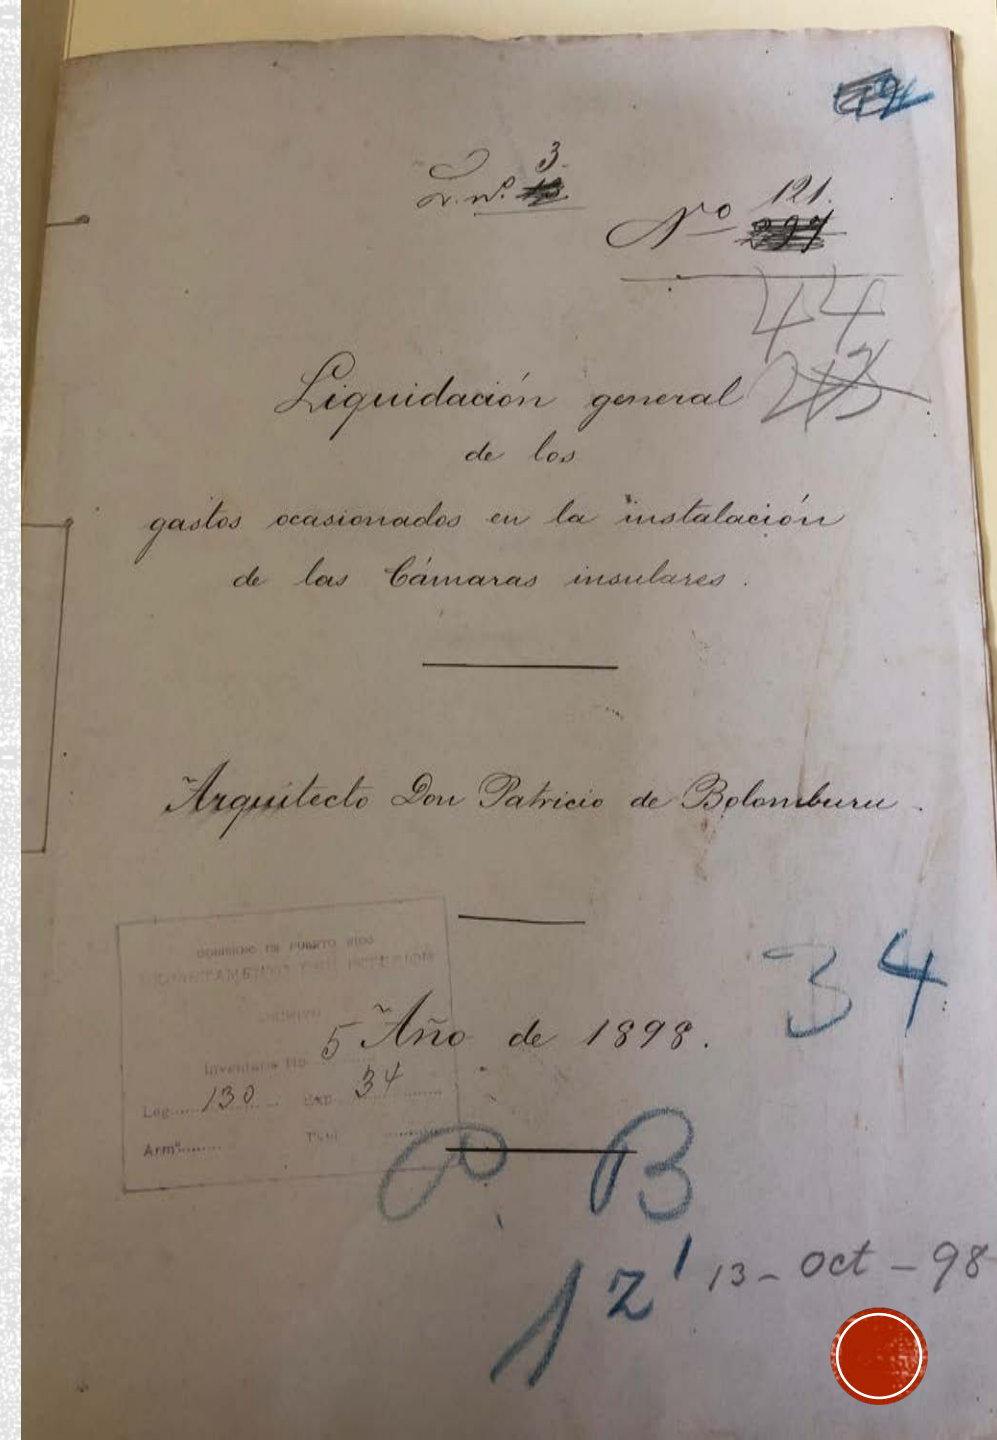 L. nº. 3
Nº 121.
44
213
Liquidación general
de los
gastos ocasionados en la instalación
de las Cámaras insulares.
Arquitecto Don Patricio de Bolomburu.
34
GOBIERNO DE PUERTO RICO
DEPARTAMENTO DEL INTERIOR
ARCHIVO
Inventario No. 5
Año de 1898.
Leg. 130 Exp. 34
Armº
P. B
13-Oct-98